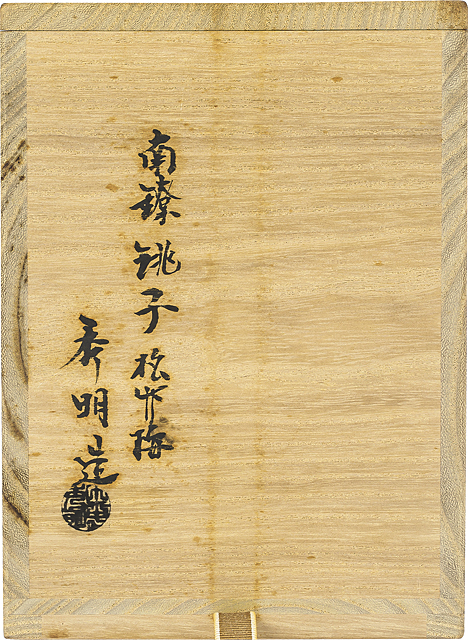 南鐐 銚子 松竹梅
秀明造